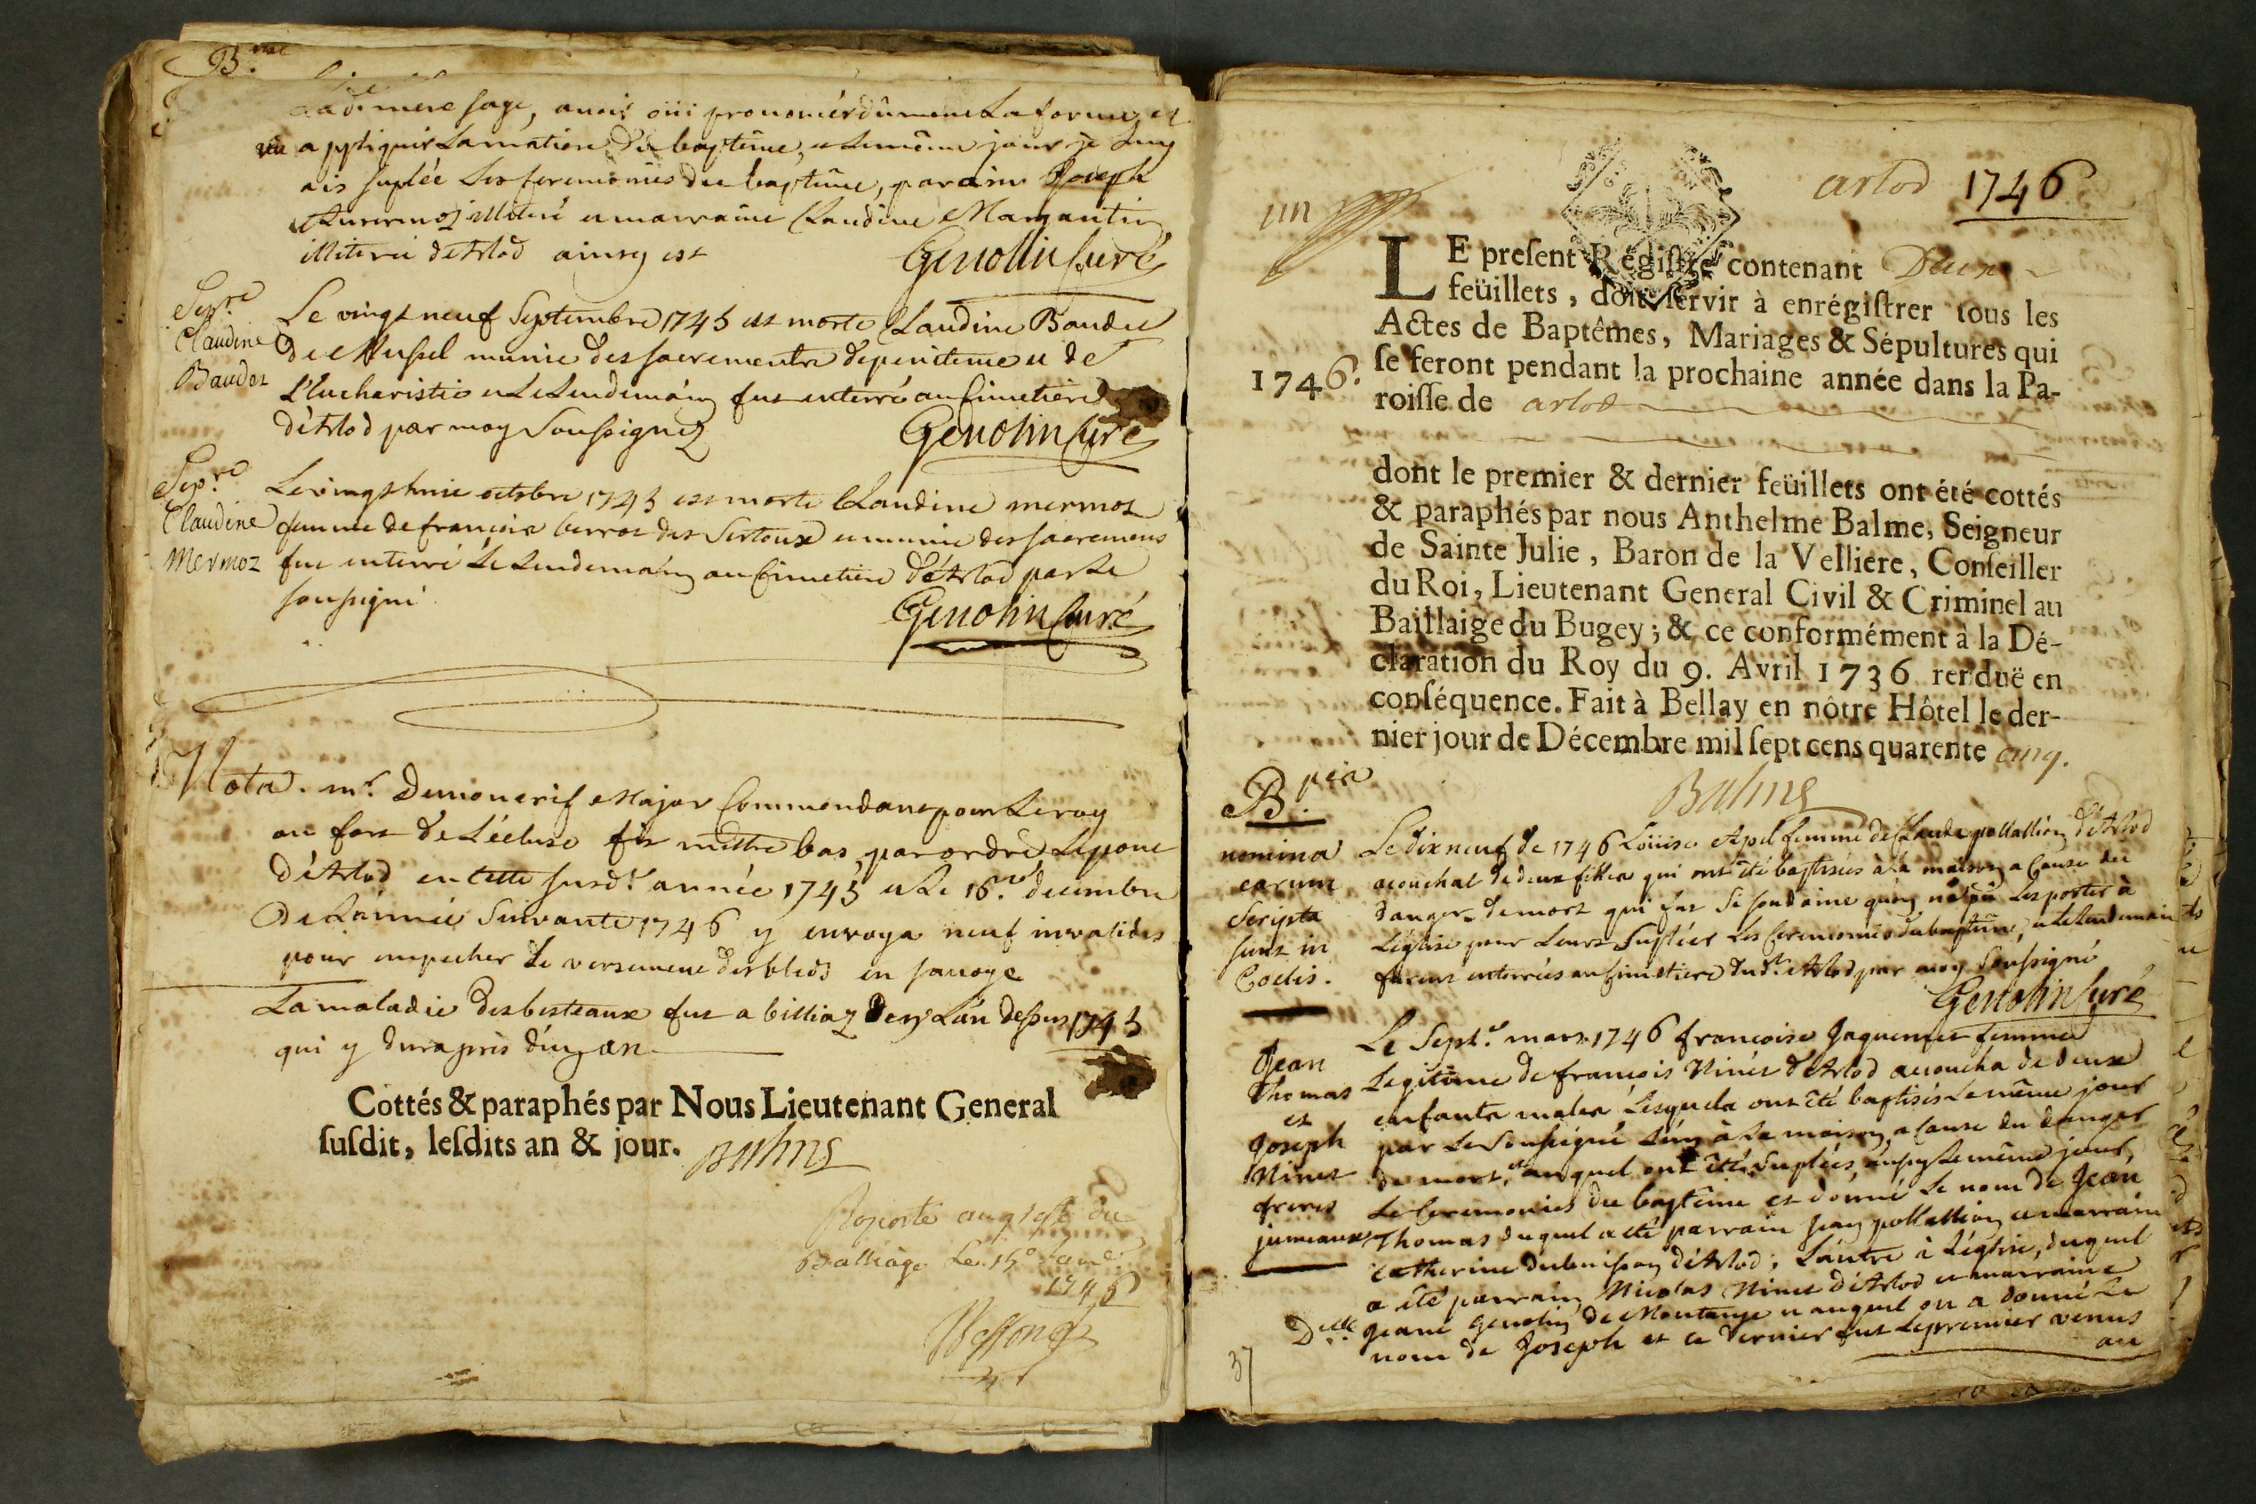 B.me
La dite mere sage, avoir oüi prononcér dûment La forme, et
vu appliquér La matiere du baptême, et le même jour je luy
ais suplée Les ceremonies du baptême, parain Joseph
illiteré et marraine Claudine Marquantin
illiterée d'Arlod ainsy est
Genolin Curé
Sepre
Claudine
Baudet
Le vingt neuf Septembre 1745 est morte Claudine Baudet
De Mussel munie des sacrements de penitence et de
L'Eucharistie et Le Lendemain fut enterré au Cimetiere
d'Arlod par moy Soussignez
Genolin Curé
Sepre
Claudine
Mermoz
Le vingt huit octobre 1745 est morte Claudine mermoz
femme de françois berrot des Sertoux et munie des sacremens
fut enterré Le Lendemain au Cimetiere d'Arlod par Le
soussigné
Genolin Curé
Nota. mr. Major Commendant pour Le roy
au fort de L'écluse fit mettre bas, par ordre Le pont
d'Arlod en cette susdt. année 1745 et Le 16e. decembre
De L'année Suivante 1746 y envoya neuf invalides
pour empecher Le versement des bleds en savoye
La maladie des besteaux fut a billiaz Dez L'an dessus 1745
qui y dura près d'un an
Cottés & paraphés par Nous Lieutenant General
susdit, lesdits an & jour. Balme
Raporté au greffe du
Balliage Le 15e Janv.
arlod 1746
un
LE present Régistre contenant Deux
feüillets, doit servir à enrégistrer tous les
Actes de Baptêmes, Mariages & Sépultures qui
1746. se feront pendant la prochaine année dans la Pa-
roisse de arlod
dont le premier & dernier feüillets ont été cottés
& paraphés par nous Anthelme Balme, Seigneur
de Sainte Julie, Baron de la Velliere, Conseiller
du Roi, Lieutenant General Civil & Criminel au
Baillaige du Bugey; & ce conformément à la Dé-
claration du Roy du 9. Avril 1736 renduë en
conséquence. Fait à Bellay en nôtre Hôtel le der-
nier jour de Décembre mil sept cens quarente cinq.
Balme
B.
nomina
earum
Scripta
sunt in
Coelis.
Le dix neuf de 1746 Loüise Apel femme de Claude pollallion d'Arlod
acouchat de deux filles qui ont été baptisées à la maison a Cause du
danger de mort qui fut Si soudaine qu'on n'a pû Les porter à
L'église pour Leurs Supléer Les Ceremonies du baptême, et le Lendemain
furent enterrées au Cimetiere dudt. Arlod par moy Soussigné
Genolin Curé
Jean
Thomas
et
Joseph
Ninet
freres
jumeaux
Le Sept. mars 1746 françoise Jaquemet femme
Legitime de françois Ninet d'Arlod acoucha de deux
enfants males Lesquels ont été baptisés Le même jour
par Le Soussigné L'un à La maison, a Cause du danger
de mort, auquel ont été Suplées, Le même jour,
Le Ceremonies du baptême et donné Le nom de Jean
Thomas duquel a été parrain jean pollallion et marraine
Catherine d'Arlod; L'autre à L'église, duquel
a été parrain Nicolas Ninet d'Arlod et marraine
Delle Jeane Genolin de Montange et auquel on a donné Le
nom de Joseph et ce dernier fut Le premier venus
au
37